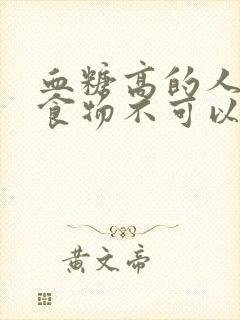 血糖高的人
食物不可以
黄文帝